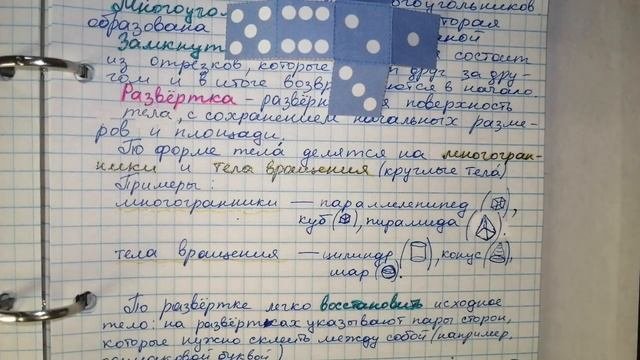 Многоугол
образована
Замкнут состоит
из отрезков, которые друг за дру-
гом и в итоге возвр ются в начало.
Развёртка - развёрн я поверхность
тела, с сохранением начальных разме-
ров и площади.
По форме тела́ делятся на многогран-
ники и тела вращения (круглые тела́)
Примеры:
многогранники — параллелепипед ( ),
куб ( ), пирамида ( ).
тела вращения — цилиндр ( ), конус ( ),
шар ( ).
По развёртке легко восстановить исходное
тело: на развёртках указывают пары сторон,
которые нужно склеить между собой (например,
одинаковой буквой)